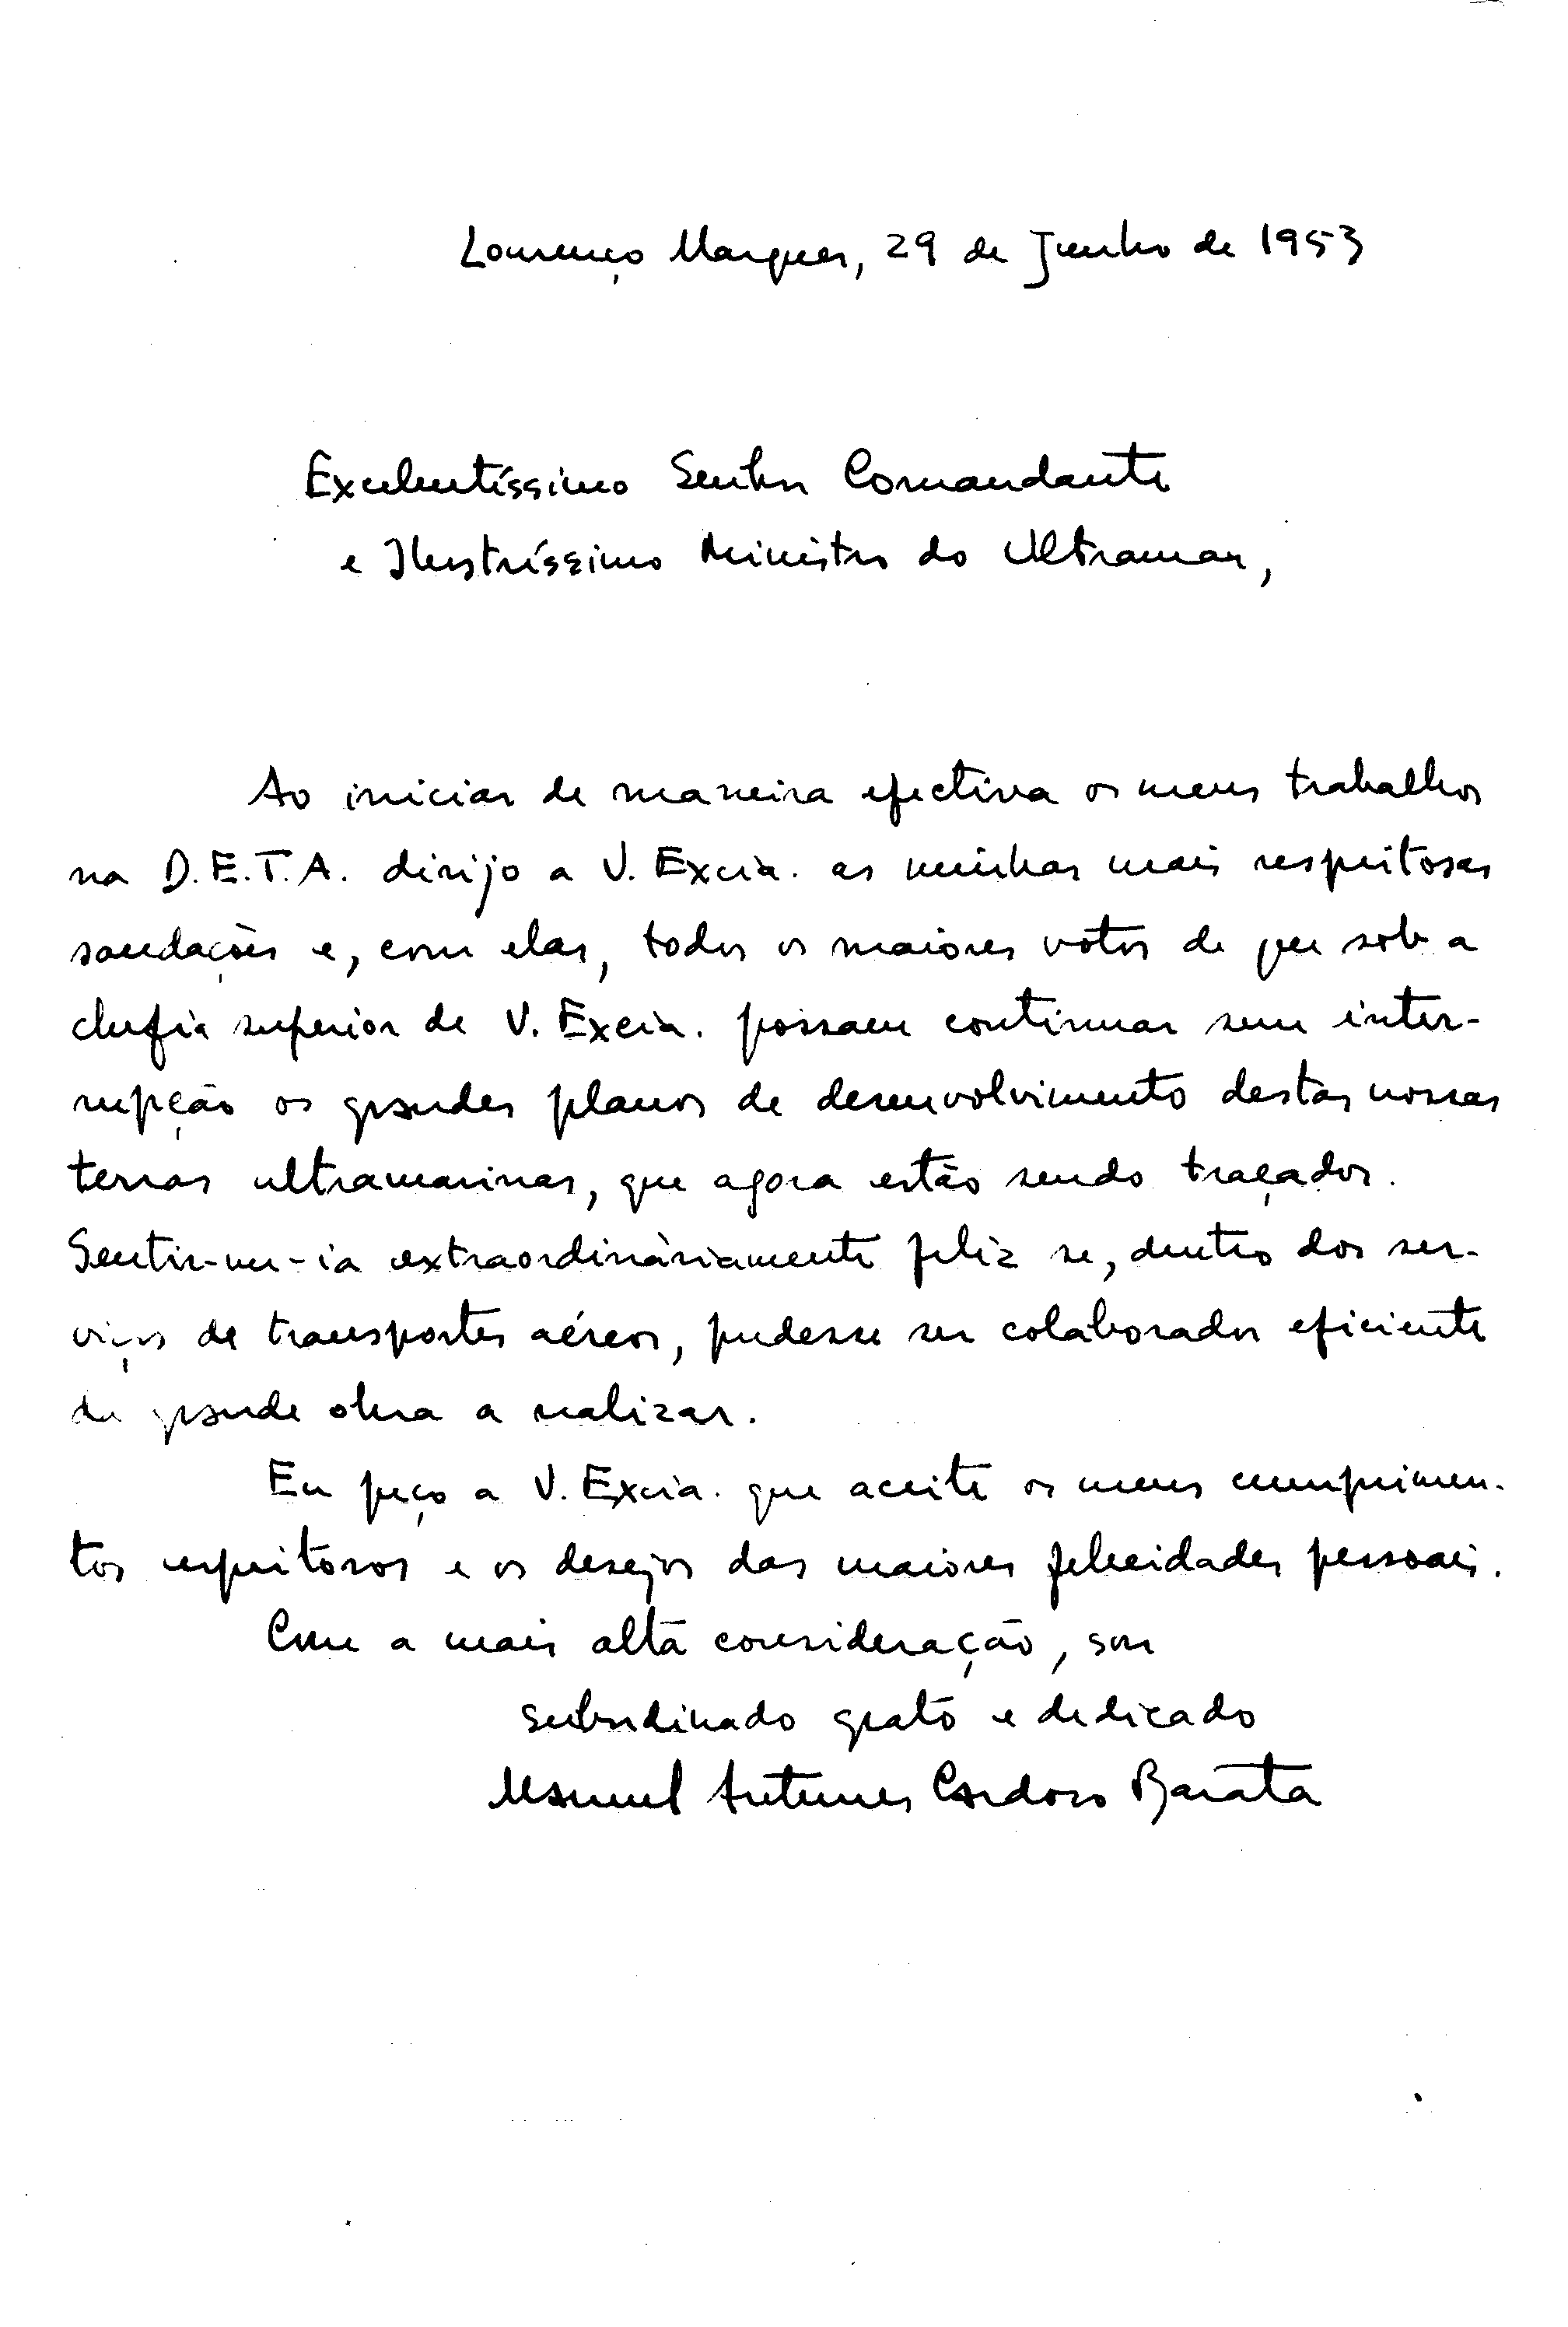 Lourenço Marques, 29 de Junho de 1953
Excelentíssimo Senhor Comandante
e Ilustríssimo Ministro do Ultramar,
Ao iniciar de maneira efectiva os meus trabalhos
na D.E.T.A. dirijo a V. Excia. as minhas mais respeitosas
saudações e, com elas, todos os maiores votos de que sob a
chefia superior de V. Excia. possam continuar sem inter-
rupção os grandes planos de desenvolvimento destas nossas
terras ultramarinas, que agora estão sendo traçados.
Sentir-me-ia extraordinàriamente feliz se, dentro dos ser-
viços de transportes aéreos, pudesse ser colaborador eficiente
da grande obra a realizar.
Eu peço a V. Excia. que aceite os meus cumprimen-
tos respeitosos e os desejos das maiores felicidades pessoais.
Com a mais alta consideração, sou
subordinado grato e dedicado
Manuel Antunes Cardoso Barata